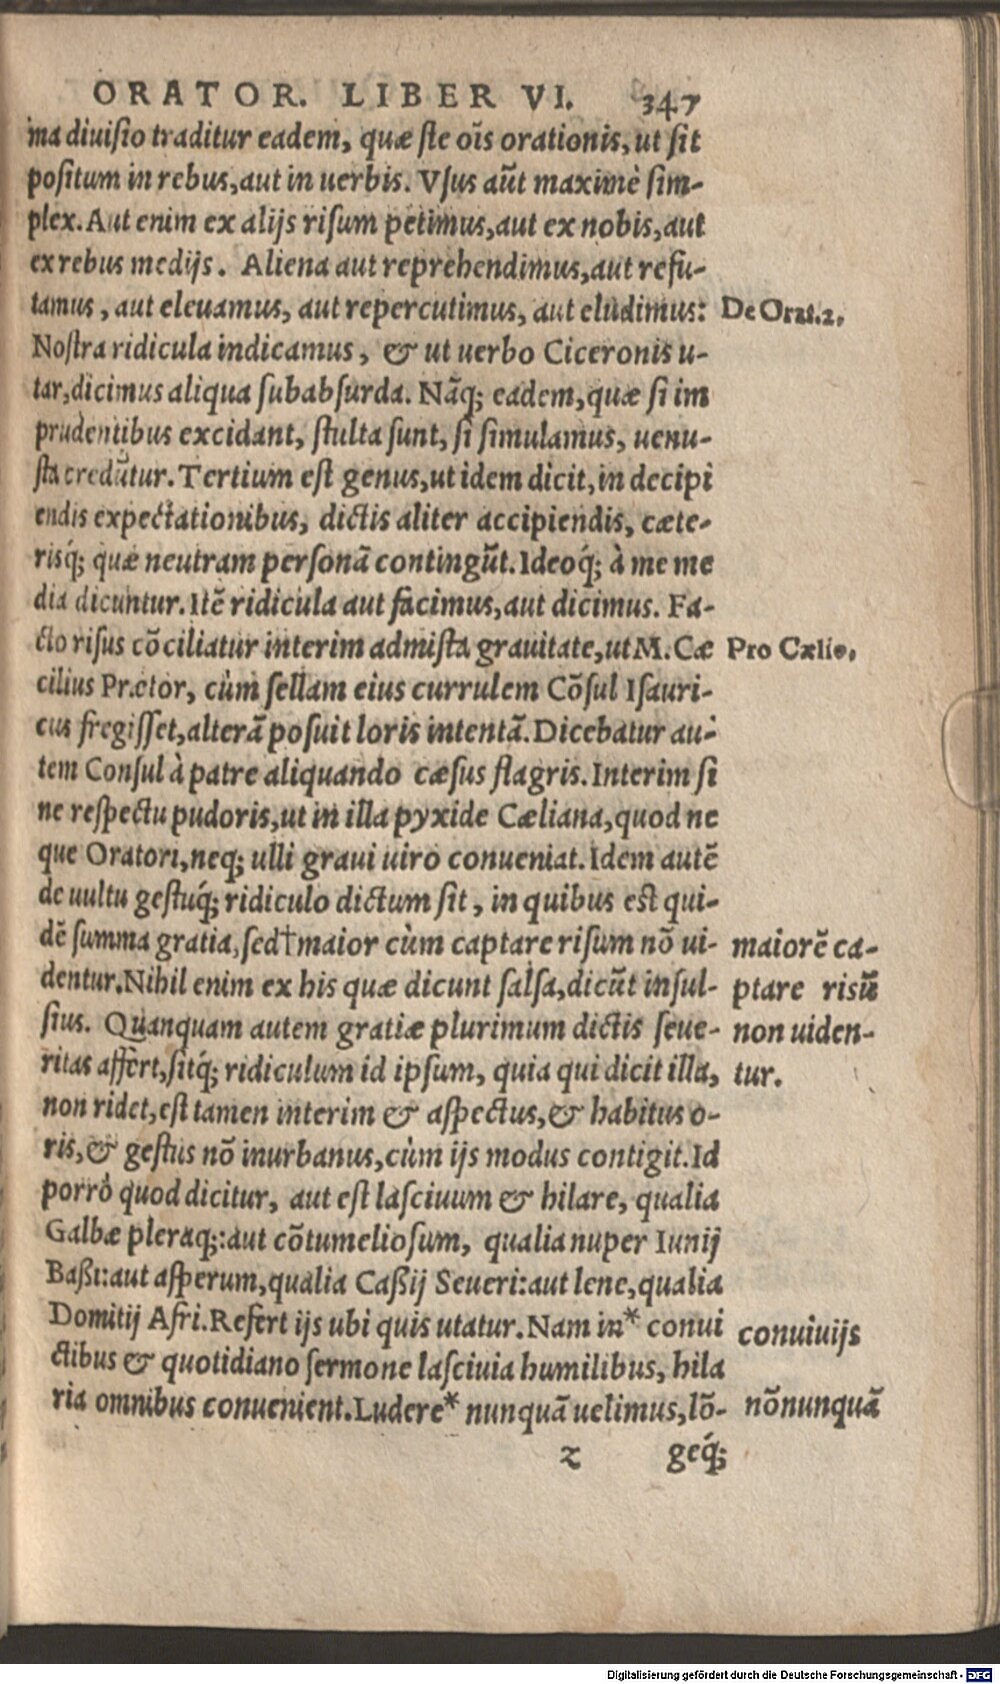 ORATOR. LIBER VI. 347
ma diuisio traditur eadem, quæ ste oīs orationis, ut sit
positum in rebus, aut in uerbis. Vsus aūt maximè sim-
plex. Aut enim ex alijs risum petimus, aut ex nobis, aut
ex rebus medijs. Aliena aut reprehendimus, aut refu-
tamus, aut eleuamus, aut repercutimus, aut eludimus: De Orat.2.
Nostra ridicula indicamus, & ut uerbo Ciceronis u-
tar, dicimus aliqua subabsurda. Nāq; eadem, quæ si im
prudentibus excidant, stulta sunt, si simulamus, uenu-
sta credūtur. Tertium est genus, ut idem dicit, in decipi
endis expectationibus, dictis aliter accipiendis, cæte-
risq́; quæ neutram personā contingūt. Ideoq́; à me me
dia dicuntur. Itē ridicula aut facimus, aut dicimus. Fa-
cto risus cōciliatur interim admista grauitate, ut M. Cæ Pro Cælio.
cilius Prætor, cùm sellam eius currulem Cōsul Isauri-
cus fregisset, alterā posuit loris intentā. Dicebatur au-
tem Consul à patre aliquando cæsus flagris. Interim si
ne respectu pudoris, ut in illa pyxide Cæliana, quod ne
que Oratori, neq; ulli graui uiro conueniat. Idem autē
de uultu gestuq́; ridiculo dictum sit, in quibus est qui-
dē summa gratia, sed† maior cùm captare risum nō ui- maiorē ca-
dentur. Nihil enim ex his quæ dicunt salsa, dicūt insul- ptare risū
sius. Quanquam autem gratiæ plurimum dictis seue- non uiden-
ritas affert, sitq́; ridiculum id ipsum, quia qui dicit illa, tur.
non ridet, est tamen interim & aspectus, & habitus o-
ris, & gestus nō inurbanus, cùm ijs modus contigit. Id
porrò quod dicitur, aut est lasciuum & hilare, qualia
Galbæ pleraq;: aut cōtumeliosum, qualia nuper Iunij
Baßi: aut asperum, qualia Caßij Seueri: aut lene, qualia
Domitij Afri. Refert ijs ubi quis utatur. Nam in* conui conuiuijs
ctibus & quotidiano sermone lasciuia humilibus, hila
ria omnibus conuenient. Ludere* nunquā uelimus, lō- nōnunquā
z geq́;
Digitalisierung gefördert durch die Deutsche Forschungsgemeinschaft - DFG